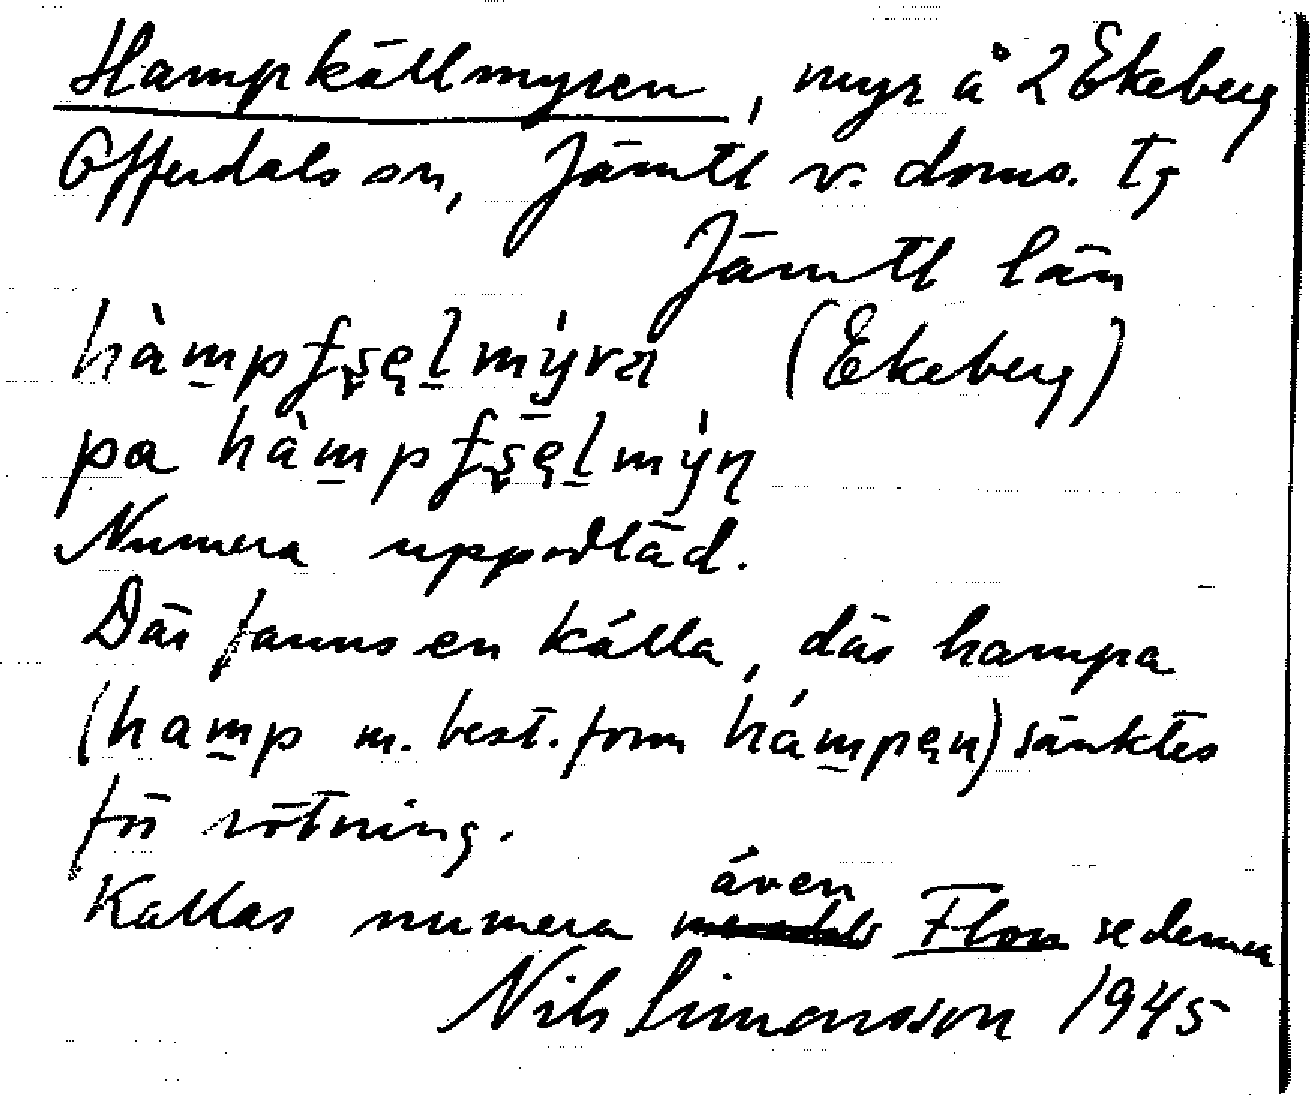 Hampkällmyren, myr å 2 Ekeberg
Offerdals sn, Jämtl v. doms. tg
Jämtl län
hàm̱pʄşęḻmy̍ra (Ekeberg)
pa hàm̱pʄşęḻmy̍η
Numera uppodlad.
Där fanns en källa, där hampa
(ham̱p m. best. form hám̱pęn) sänktes
för rötning.
Kallas numera även Flon se denna
Nils Simonsson 1945